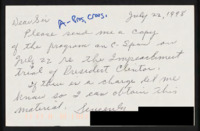 Dear Sir July 22, 1998
Please send me a copy
of the program on C. Span on
July 22 re the Impeachment
Trial of President Clinton.
If there is a charge let me
know so I can obtain this
material. Sincerely